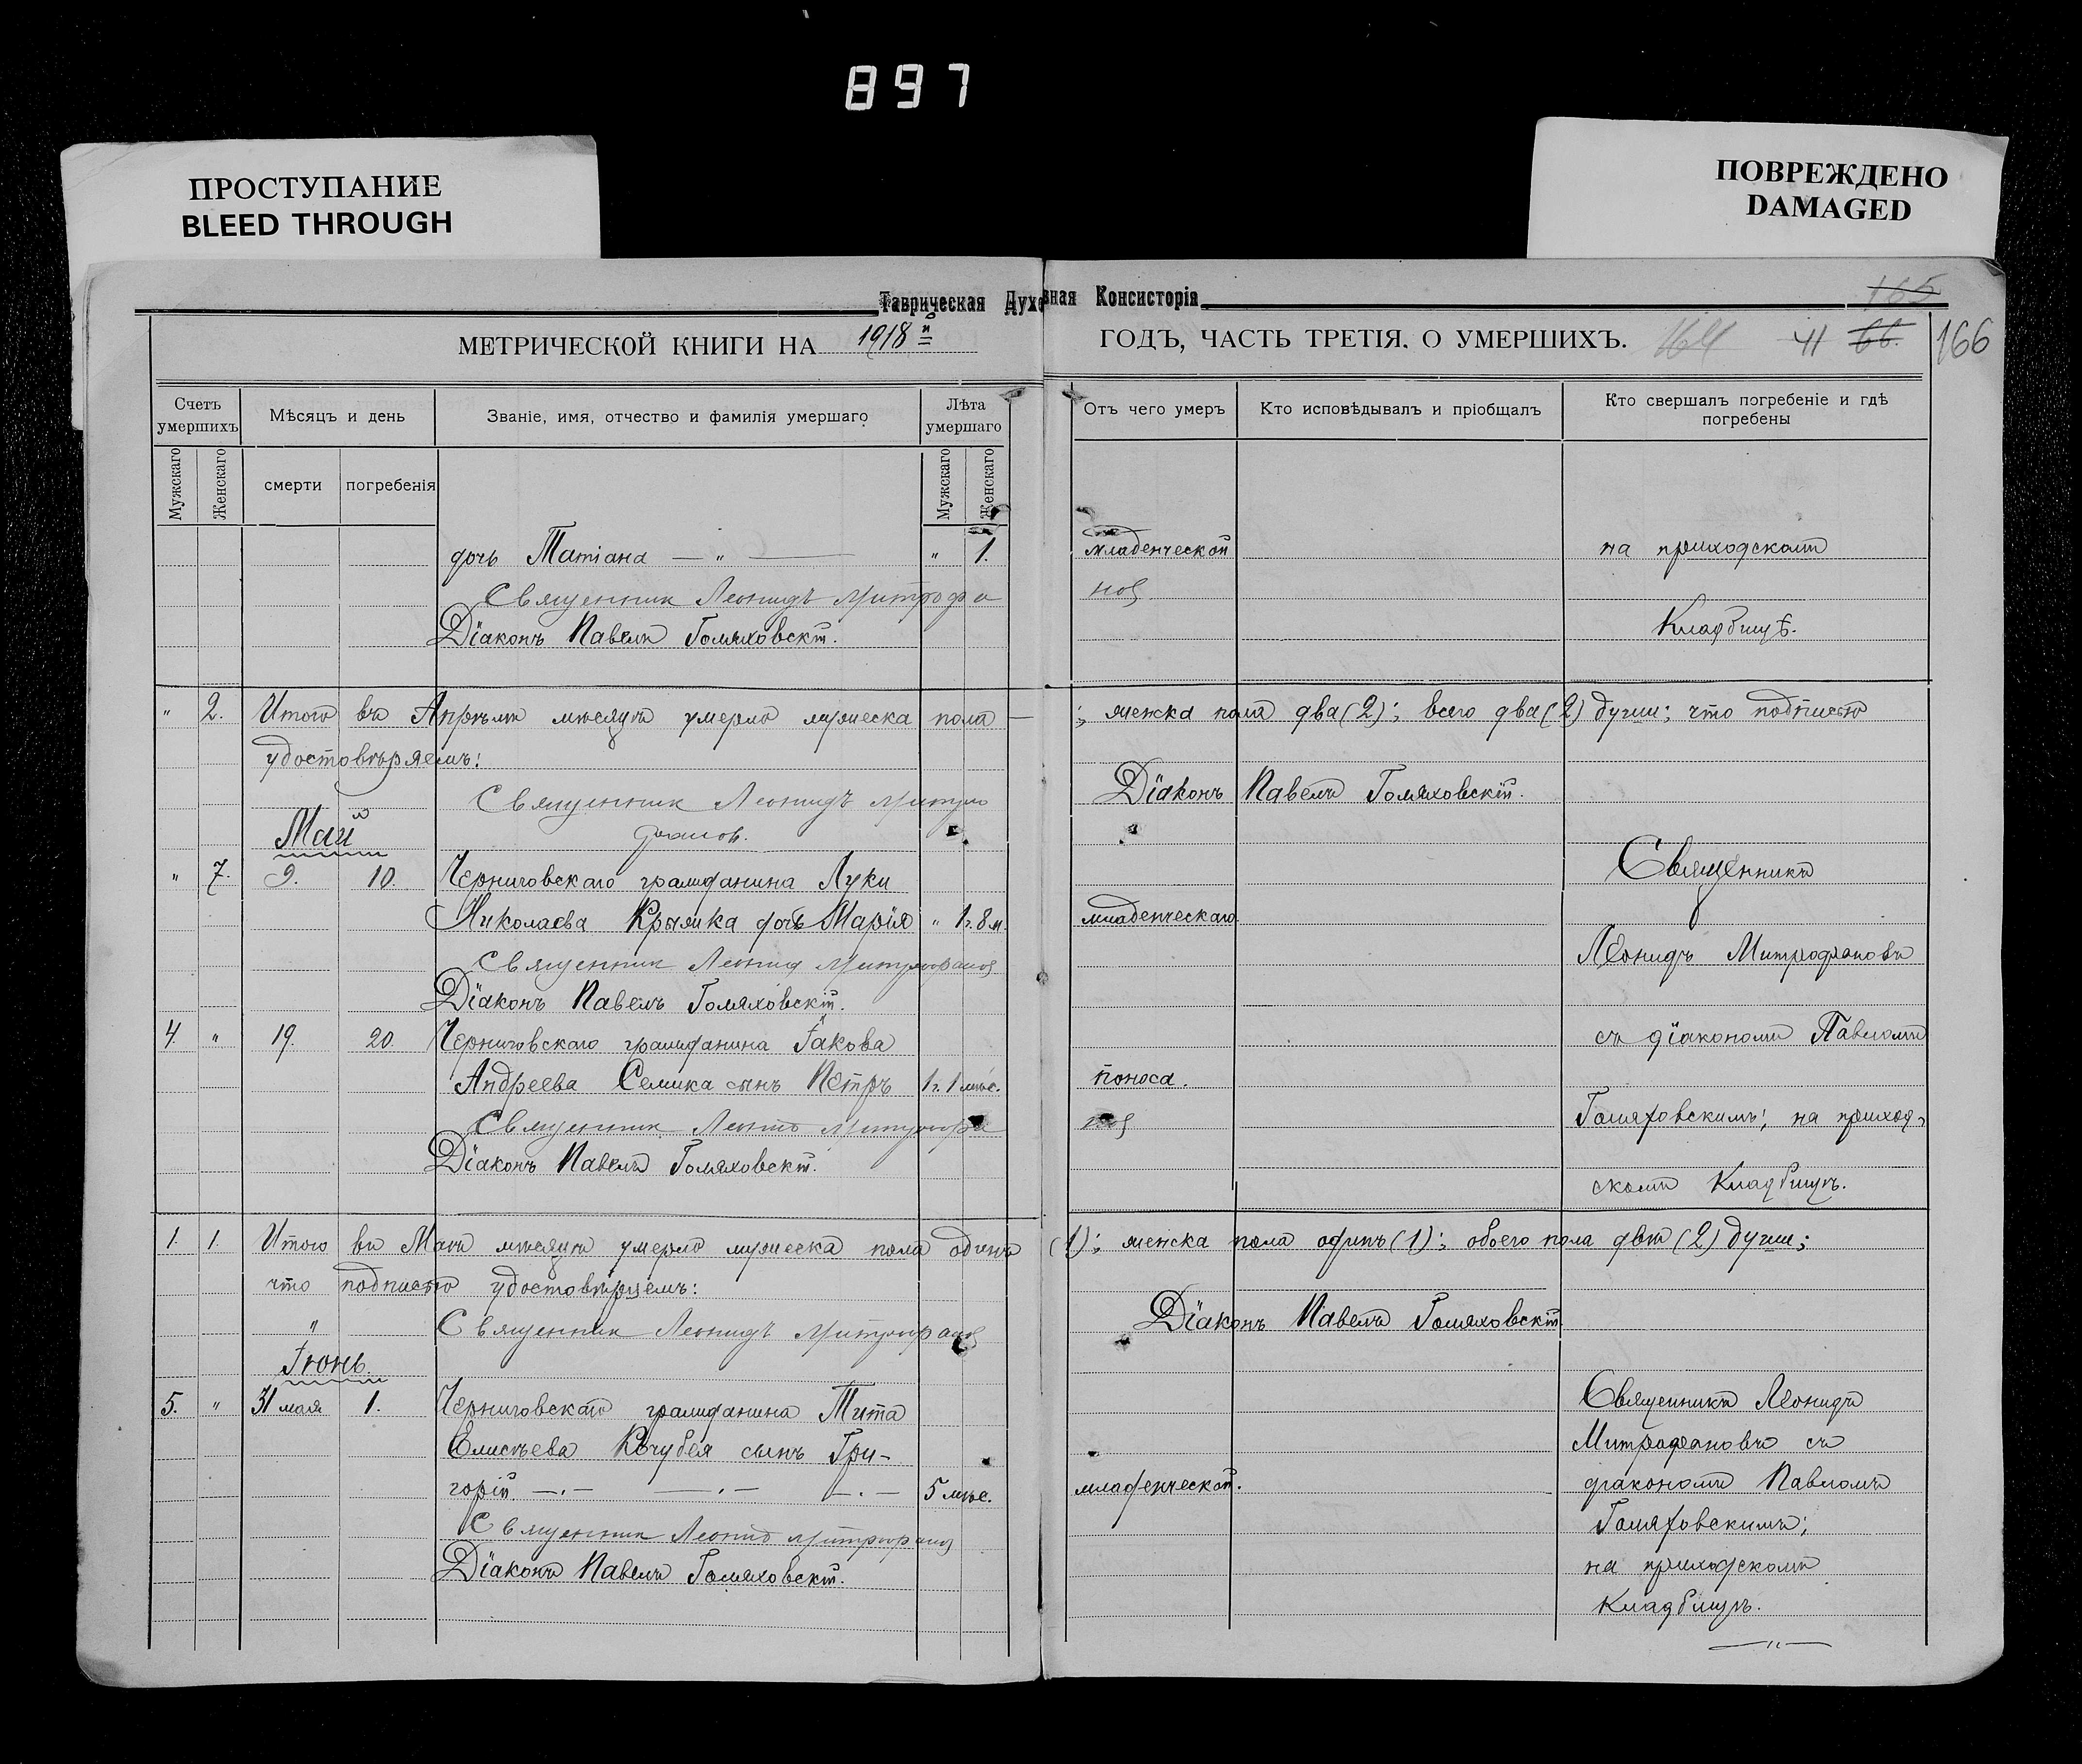 897
ПРОСТУПАНИЕ
BLEED THROUGH
ПОВРЕЖДЕНО
DAMAGED
Таврическая Духовная Консисторія
165
МЕТРИЧЕСКОЙ КНИГИ НА 1918й ГОДЪ, ЧАСТЬ ТРЕТІЯ. О УМЕРШИХЪ.
164 41 66. 166
Счетъ умершихъ
Мѣсяцъ и день
Званіе, имя, отчество и фамилія умершаго
Лѣта умершаго
Отъ чего умеръ
Кто исповѣдывалъ и пріобщалъ
Кто свершалъ погребеніе и гдѣ погребены
Мужскаго
Женскаго
смерти
погребенія
Мужскаго
Женскаго
дочь Татіана — " — " 1. младенческой на приходскомъ
Священник Леонидъ Митрофа
нов
Діаконъ Павелъ Гомяховскій. Кладбищѣ.
" 2. Итого въ Апрѣлѣ мѣсяцѣ умерло мужеска пола — ; женска пола два (2); всего два (2) души; что подписью
удостовѣряемъ:
Священник Леонидъ Митро
фанов. Діаконъ Павелъ Гомяховскій.
Май
" 7. 9. 10. Черниговскаго гражданина Луки Священникъ
Николаева Крыжка дочь Марія " 1г. 8м. младенческаго
Священник Леонид Митрофанов Леонидъ Митрофановъ
Діаконъ Павелъ Гомяховскій.
4. " 19. 20. Черниговскаго гражданина Іакова съ діакономъ Павломъ
Андреева Семика сынъ Петръ 1г. 1 мѣс. поноса.
Священник Леонид Митрофа
нов Гомяховскимъ; на приход-
Діаконъ Павелъ Гомяховскій.
скомъ Кладбищѣ.
1. 1. Итого въ Маѣ мѣсяцѣ умерло мужеска пола одинъ (1); женска пола одинъ (1); обоего пола двѣ (2) души;
что подписью удостовѣряемъ:
" Священник Леонидъ Митрофанов Діаконъ Павелъ Гомяховскій
Іюнь.
5. " 31 мая 1. Черниговскаго гражданина Тита Священникъ Леонидъ
Елисѣева Кочубея сынъ Гри- Митрофановъ съ
горій. —.— —.— —.— 5 мѣс. младенческой. діакономъ Павломъ
Священник Леонид Митрофанов Гомяховскимъ;
Діаконъ Павелъ Гомяховскій. на приходскомъ
Кладбищѣ.
—"—